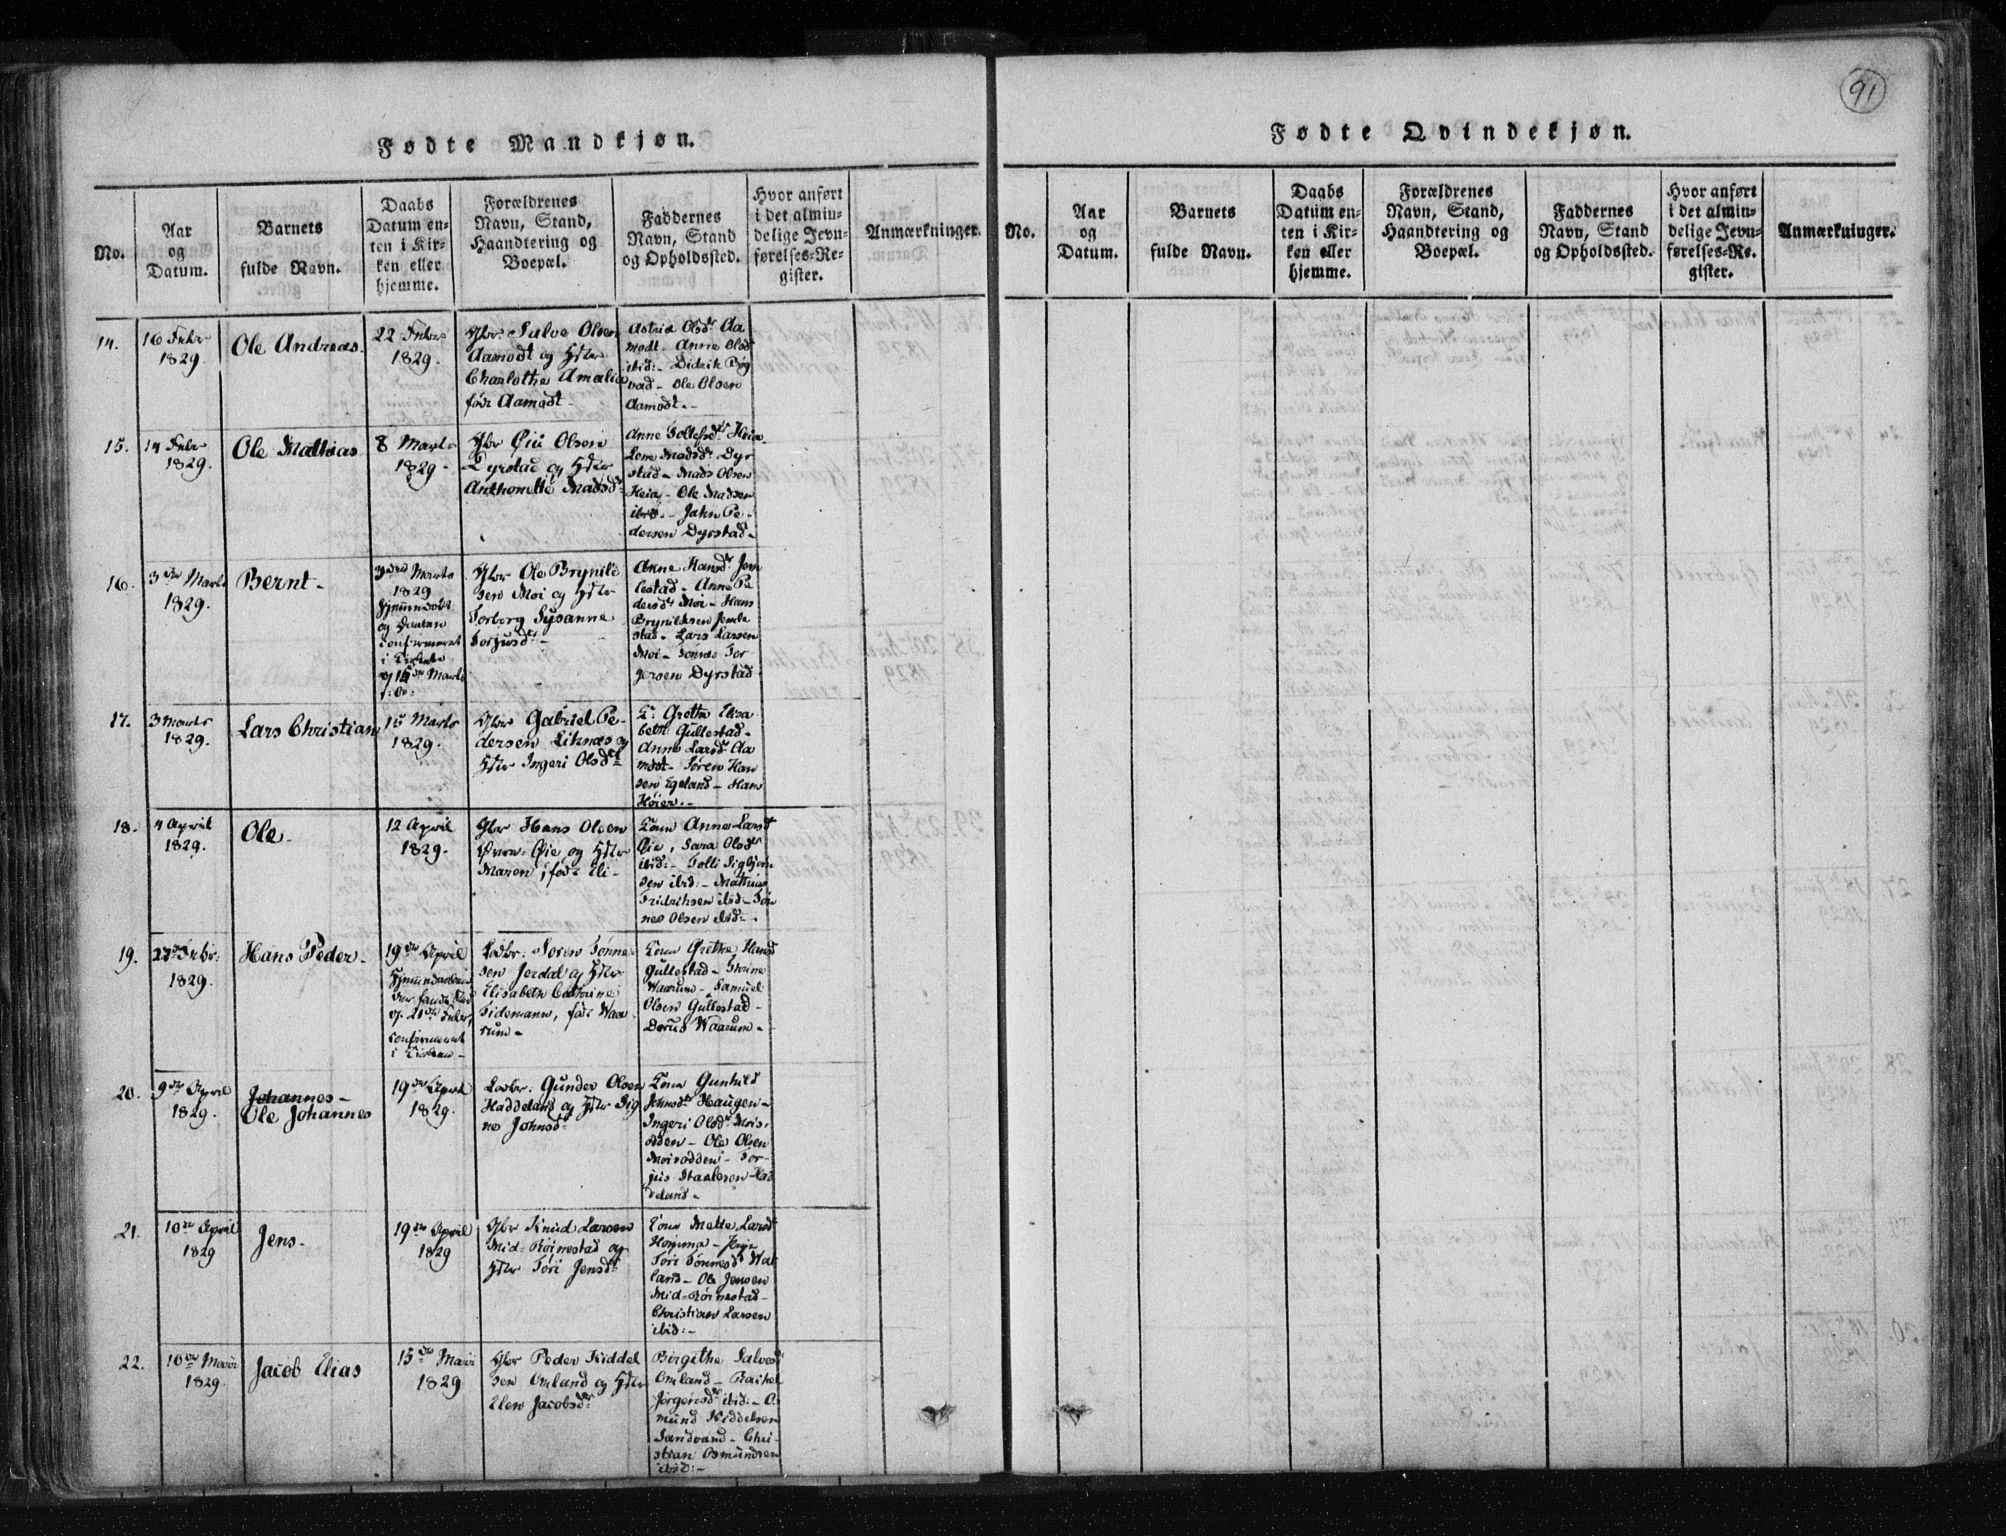 91
Fødte Mandkjøn.
No.
Aar
og
Datum.
Barnets
fulde Navn.
Daabs
Datum en-
ten i Kir-
ken eller
hjemme.
Forældrenes
Navn, Stand,
Haandtering og
Boepæl.
Faddernes
Navn, Stand
og Opholdssted.
Hvor anført
i det almin-
delige Jevn-
førelses-Re-
gister.
Anmærkninger.
14.
16 Febr
1829.
Ole Andreas.
22 Febr
1829.
Gbr: Salve Olsen
Aamodt og Hstr
Charlotha Amalia
föd: Aamodt-
Astrid Olsdr Aa
modt- Anne Olsdr
ibid:- Didrik Bøg
vad- Ole Olsen
Aamodt.-
15.
14 Febr
1829.
Ole Mathias
8 Marts
1829-
Gbr Øie Olsen
Dyrstad og Hstr
Anthonette Madsdr
Anne Tollefsdr Heia-
Lene Madsdr Dyr
stad- Mads Olsen
Heia- Ole Madsen
ibid.- Jahn Pe-
dersen Dyrstad-
16.
3die Marts
1829.
Bernt-
3die Marts
1829
Hjemmedøbt
og Daaben
confirmeret
i Kirken
d 15de Marts
Gbr Ole Brynild
sen Moi og Hstr
Torborg Sysanne
Torjusdr-
Anne Hansdr Jem
lestad- Anne Pe
dersdr Moi- Hans
Brynildsen Jemle
stad- Lars Larsen
Moi- Tönnes Tor
gersen Dyrstad
17.
3 Marts
1829.
Lars Christian
15 Marts
1829.
Gbr Gabriel Pe-
dersen Liknæs og
Hstr Ingeri Olsdr
K: Grethe Elisa
beth Gullestad-
Anne Larsdr Aa
modt- Sören Han
sen Egeland- Hans
Höier.-
18.
4 April
1829.
Ole.
12 April
1829.
Gbr Hans Olsen
Øvre-Øie og Hstr
Maren, föd: Eli-
Kone Anne Larsdr
Øie, Sara Olsdr
ibid:- Tolli Sigbjørn
sen ibid:- Mathias
Fridrichsen ibid- Tön
nes Olsen ibid-
19.
27de Febr:
1829.
Hans Peder-
19de April
confirmeret
i Kirken-
Ladbr: Soren Tönne
sen Jerdal og Hstr
Elisabeth Cathrine
Tidemann, föd: Waa
rum-
Kone Grethe Hansdr
Gullestad- Stine
Waarum- Samuel
Olsen Gullestad-
Dorus Waarum-
20.
9de April
1829.
Johannes-
Ole Johannes
19de April
1829.
Ladbr: Gunder Olsen
Haddeland og Hstr Sig
ne Johnsdr
Kone Gunhild
Johnsdr Haugen-
Ingeri Olsdr Mois-
odden- Ole Olsen
Moisodden- Tor-
jus Staalesen Had
deland-
21.
10de April
1829
Jens-
19de April
1829
Gbr Knud Larsen
Mid-Röinestad og
Hstr Töri Jensdr
Kone Mette Larsdr
Homma- Pige
Töri Tönnesdr Wat
land- Ole Jensen
Mid-Röinestad-
Christian Larsen
ibid:-
22.
10de Marti
1829.
Jacob Elias
15de Marti
1829
Gbr Peder Kiddel
sen Omland og Hstr
Elen Jacobsdr
Birgithe Salvesdr
Omland- Rachel
Jörgensdr ibid:- Os
mund Kiddelsen
Sandvand- Chri-
stian Osmundsen
ibid:-
Fødte Qvindekjøn.
No.
Aar
og
Datum.
Barnets
fulde Navn.
Daabs
Datum en-
ten i Kir-
ken eller
hjemme.
Forældrenes
Navn, Stand,
Haandtering og
Boepæl.
Faddernes
Navn, Stand
og Opholdssted.
Hvor anført
i det almin-
delige Jevn-
førelses-Re-
gister.
Anmærkninger.